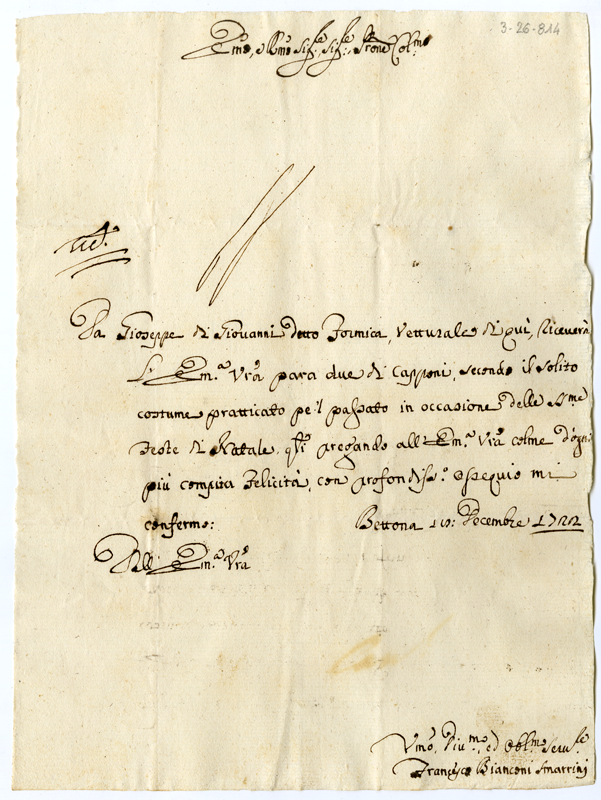 3-26-814
Emo, e Rmo Sigre, Sigre, e Prone Colmo
Da Gioseppe di Giovanni detto Formica, Vetturale di qui, riceverà
l'Em.a Vra para due di Capponi, secondo il solito
costume pratticato pe'l passato in occasione delle SSme
Feste di Natale, qli pregando all'Em.a Vra colme d'ogni
più compita Felicità, con profondiss.o ossequio mi
confermo: Bettona 10: Decembre 1722
Dell'Em.a Vra
Umo, Diumo, ed Obblmo Servre
Francesco Bianconi